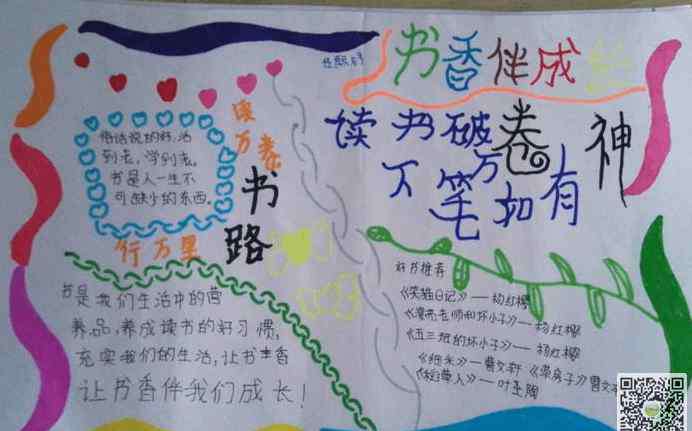 书香伴成长
读书破万卷
下笔如有神
读万卷书
行万里路
俗话说的好,活
到老,学到老。
书是人一生不
可缺少的东西。
书是我们生活中的营
养品,养成读书的好习惯,
充实我们的生活,让书香
让书香伴我们成长!
好书推荐
《笑猫日记》——杨红樱
《漂亮老师和坏小子》——杨红樱
《五三班的坏小子》——杨红樱
《细米》——曹文轩《草房子》曹文
《稻草人》——叶圣陶